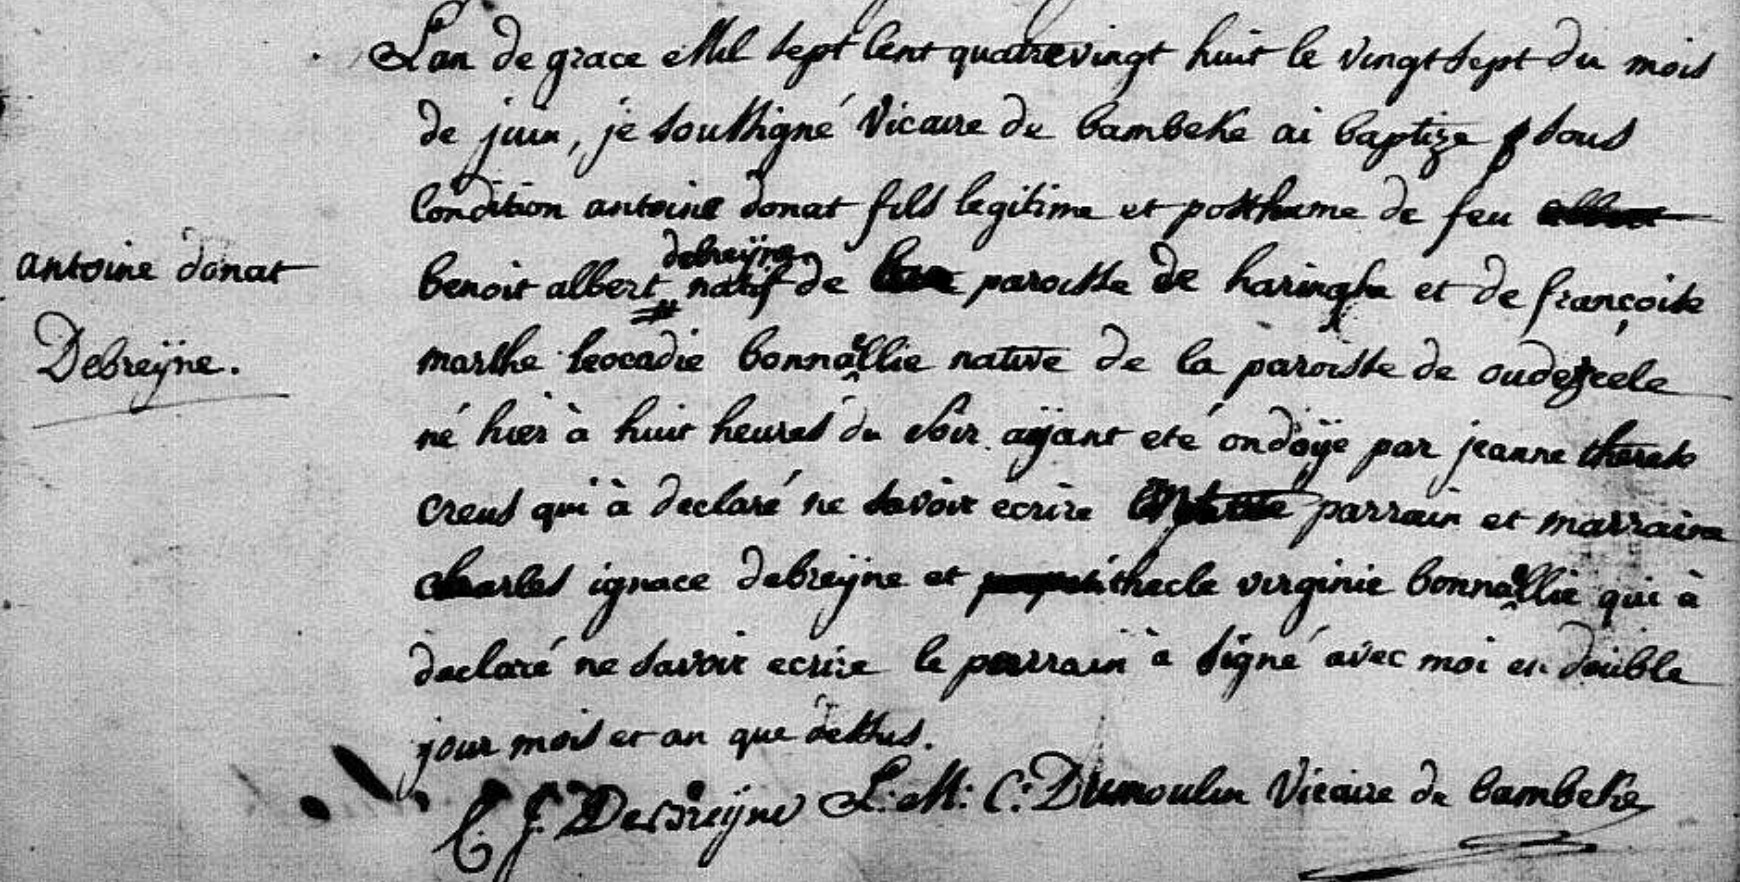 L'an de grace Mil sept Cent quatrevingt huit le vingt sept du mois
de juin, je soussigné Vicaire de bambeke ai baptize sous
Condition antoine donat fils legitime et posthume de feu
debreÿne
benoit albert natif de paroisse de haringhe et de françoise
antoine donat
Debreÿne.
marthe leocadie bonnaëllie native de la paroisse de oudezeele
né hier à huit heures du soir aÿant eté ondoÿe par jeanne therese
creus qui à declaré ne savoir ecrire parrain et marraine
charles ignace debreÿne et thecle virginie bonnaëllie qui à
declaré ne savoir ecrire le parrain à signé avec moi en double
jour mois et an que dessus.
C. J. Debreÿne L: M: C: Dumoulin Vicaire de bambeke